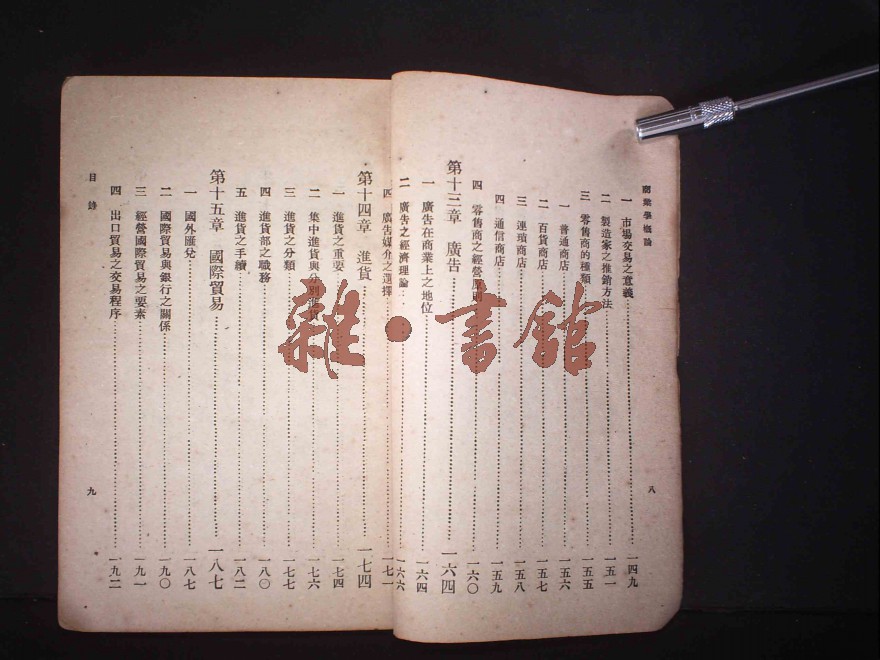 商業學概論
一 市場交易之意義 一四九
二 製造家之推銷方法 一五一
三 零售商的種類 一五五
一 普通商店 一五六
二 百貨商店 一五七
三 連瑣商店 一五八
四 通信商店 一五九
四 零售商之經營原則 一六〇
第十三章 廣告 一六四
一 廣告在商業上之地位 一六四
二 廣告之經濟理論 一六六
八
四 廣告媒介之選擇 一七一
第十四章 進貨 一七四
一 進貨之重要 一七四
二 集中進貨與分別進貨 一七六
三 進貨之分類 一七七
四 進貨部之職務 一八〇
五 進貨之手續 一八二
第十五章 國際貿易 一八七
一 國外匯兌 一八七
二 國際貿易與銀行之關係 一九〇
三 經營國際貿易之要素 一九一
四 出口貿易之交易程序 一九二
目錄
九
雜·書館